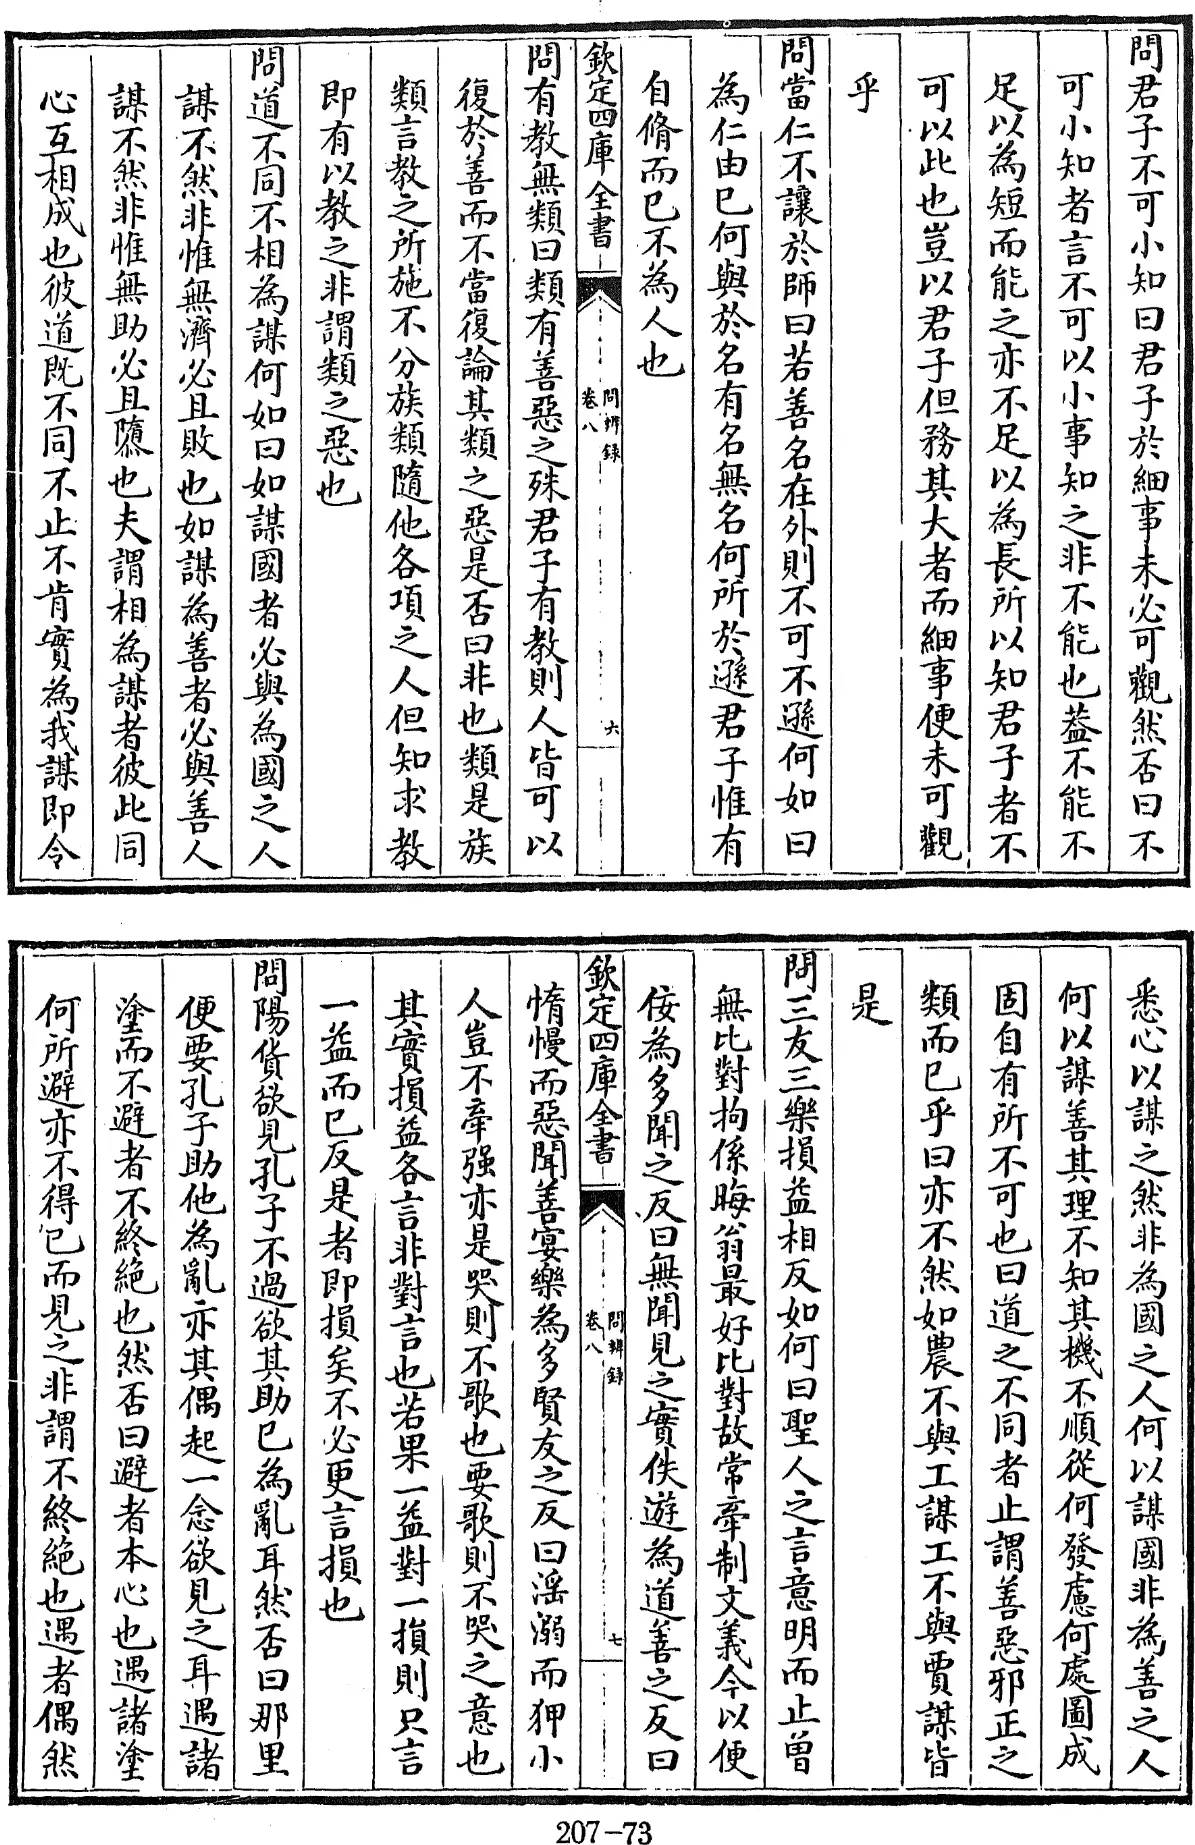 問君子不可小知曰君子於細事未必可觀然否曰不
可小知者言不可以小事知之非不能也葢不能不
足以為短而能之亦不足以為長所以知君子者不
可以此也豈以君子但務其大者而細事便未可觀
乎
問當仁不讓於師曰若善名在外則不可不遜何如曰
為仁由已何與於名有名無名何所於遜君子惟有
自脩而已不為人也
欽定四庫全書
問辨録
卷八
六
問有教無類曰類有善惡之殊君子有教則人皆可以
復於善而不當復論其類之惡是否曰非也類是族
類言教之所施不分族類隨他各項之人但知求教
即有以教之非謂類之惡也
問道不同不相為謀何如曰如謀國者必與為國之人
謀不然非惟無濟必且敗也如謀為善者必與善人
謀不然非惟無助必且隳也夫謂相為謀者彼此同
心互相成也彼道既不同不止不肯實為我謀即令
悉心以謀之然非為國之人何以謀國非為善之人
何以謀善其理不知其機不順從何發慮何處圖成
固自有所不可也曰道之不同者止謂善惡邪正之
類而已乎曰亦不然如農不與工謀工不與賈謀皆
是
問三友三樂損益相反如何曰聖人之言意明而止曽
無比對拘係晦翁最好比對故常牽制文義今以便
佞為多聞之反曰無聞見之實佚遊為道善之反曰
欽定四庫全書
問辨録
卷八
七
惰慢而惡聞善宴樂為多賢友之反曰滛溺而狎小
人豈不牽强亦是哭則不歌也要歌則不哭之意也
其實損益各言非對言也若果一益對一損則只言
一益而已反是者即損矣不必更言損也
問陽貨欲見孔子不過欲其助已為亂耳然否曰那里
便要孔子助他為亂亦其偶起一念欲見之耳遇諸
塗而不避者不終絶也然否曰避者本心也遇諸塗
何所避亦不得已而見之非謂不終絶也遇者偶然
207-73